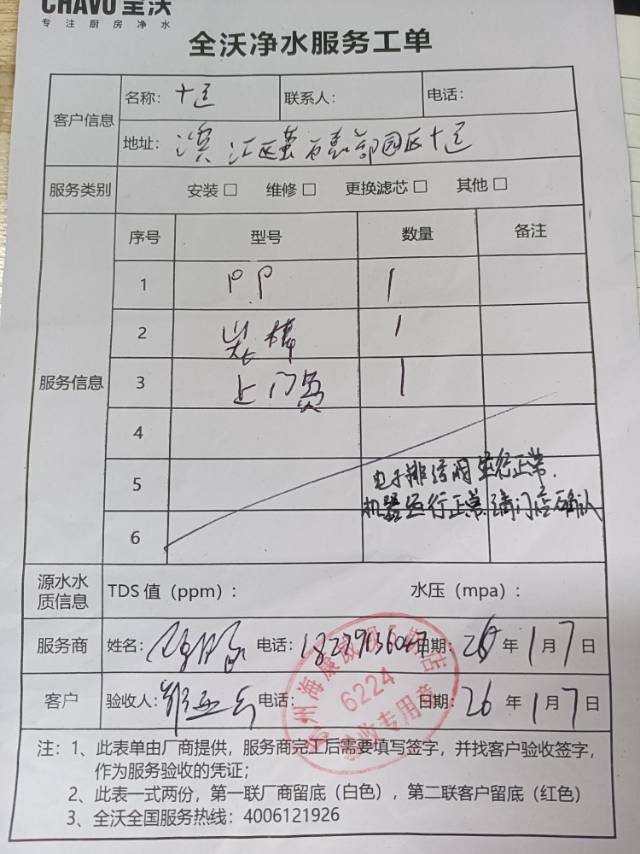 CHAVO 全沃
专注厨房净水
全沃净水服务工单
客户信息
名称： 联系人： 电话：
地址：滨江区
服务类别 安装□ 维修□ 更换滤芯□ 其他□
服务信息
序号 型号 数量 备注
1 P.P 1
2 炭棒 1
3 上门费 1
4
5 电子排污阀运行正常.
6 机器运行正常.请门店确认
源水水质信息
TDS 值（ppm）： 水压（mpa）：
服务商 姓名： 电话： 日期：26年1月7日
客户 验收人： 电话： 日期：26年1月7日
6224
验收专用章
注：1、此表单由厂商提供，服务商完工后需要填写签字，并找客户验收签字，
作为服务验收的凭证；
2、此表一式两份，第一联厂商留底（白色），第二联客户留底（红色）
3、全沃全国服务热线：4006121926